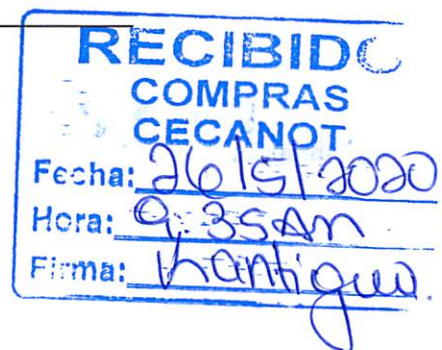 RECIBIDO
COMPRAS
CECANOT
Fecha: 26/5/2020
Hora: 9:35 AM
Firma: Kantigua